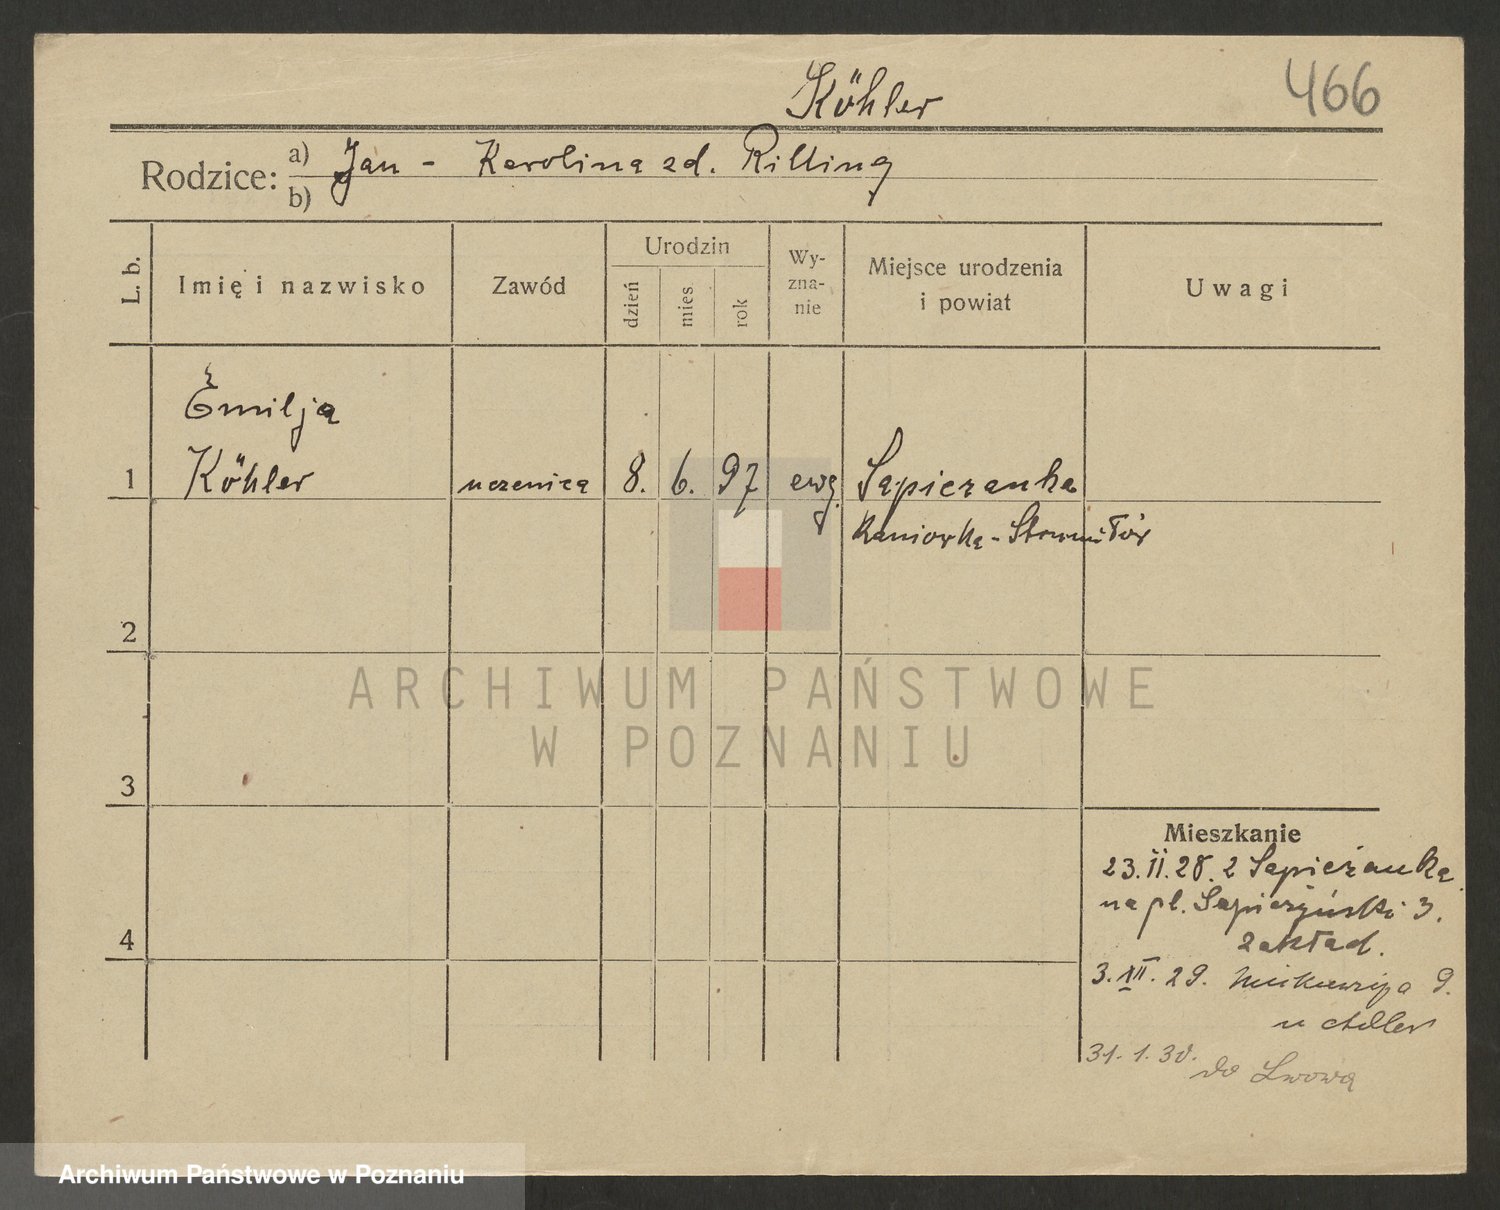 Köhler
466
Rodzice: a) Jan - Karolina zd. Rilling
b)
L. b.
Imię i nazwisko
Zawód
Urodzin
dzień
mies
rok
Wy-
zna-
nie
Miejsce urodzenia
i powiat
Uwagi
Emilja
1 Köhler uczenica 8. 6. 97 ewg. Sapieżanka
Kamionka-Strumiłów
2
3
4
Mieszkanie
23.II.28. z Sapieżanka
na pl. Sapieżyński 3.
zakład.
3.XII.29. 9.
u Adler
31.1.30. do Lwowa
ARCHIWUM PAŃSTWOWE
W POZNANIU
Archiwum Państwowe w Poznaniu